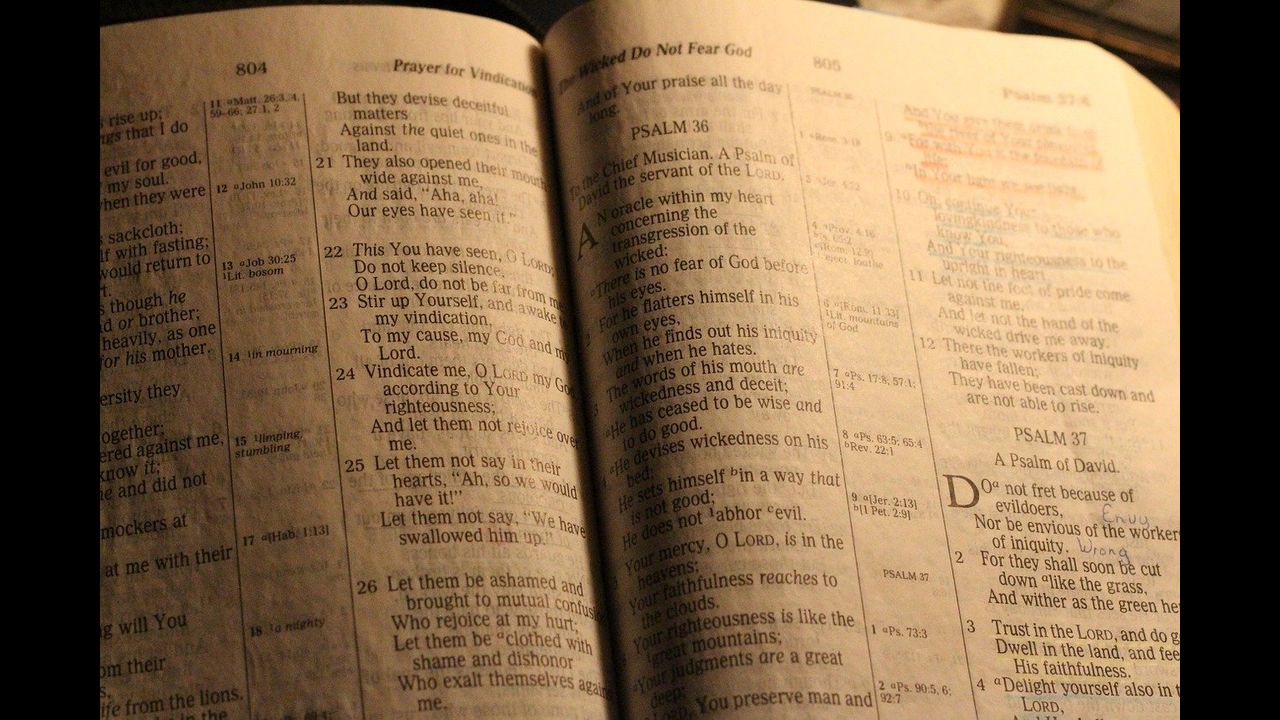 804
Prayer for Vindication
rise up;
ngs that I do
evil for good,
my soul.
when they were
sackcloth;
lf with fasting;
would return to
though he
d or brother;
heavily, as one
for his mother.
ersity they
ogether;
ered against me,
know it;
e and did not
mockers at
at me with their
g will You
om their
s,
ife from the lions.
11 aMatt. 26:3, 4,
59–66; 27:1, 2
12 aJohn 10:32
13 aJob 30:25
1Lit. bosom
14 1in mourning
15 1limping,
stumbling
17 a[Hab. 1:13]
18 1a mighty
But they devise deceitful
matters
Against the quiet ones in the
land.
21 They also opened their mouth
wide against me,
And said, "Aha, aha!
Our eyes have seen it."
22 This You have seen, O LORD;
Do not keep silence.
O Lord, do not be far from me
23 Stir up Yourself, and awake
my vindication,
To my cause, my God and my
Lord.
24 Vindicate me, O LORD my God,
according to Your
righteousness;
And let them not rejoice over
me.
25 Let them not say in their
hearts, "Ah, so we would
have it!"
Let them not say, "We have
swallowed him up."
26 Let them be ashamed and
brought to mutual confus
Who rejoice at my hurt;
Let them be aclothed with
shame and dishonor
Who exalt themselves again
me.
The Wicked Do Not Fear God
805
Psalm 37:4
And of Your praise all the day
long.
PSALM 36
To the Chief Musician. A Psalm of
David the servant of the LORD.
AN oracle within my heart
concerning the
transgression of the
wicked:
aThere is no fear of God before
his eyes.
For he flatters himself in his
own eyes,
When he finds out his iniquity
and when he hates.
The words of his mouth are
wickedness and deceit;
aHe has ceased to be wise and
to do good.
aHe devises wickedness on his
bed;
He sets himself bin a way that
is not good;
He does not 1abhor cevil.
Your mercy, O LORD, is in the
heavens;
Your faithfulness reaches to
the clouds.
Your righteousness is like the
great mountains;
aYour judgments are a great
deep;
LORD, You preserve man and
PSALM 36
1 aRom. 3:18
4 aProv. 4:16
6 a[Rom. 11:33]
1Lit. mountains
of God
7 aPs. 17:8; 57:1;
91:4
8 aPs. 63:5; 65:4
bRev. 22:1
9 a[Jer. 2:13]
b[1 Pet. 2:9]
PSALM 37
1 aPs. 73:3
2 aPs. 90:5, 6;
92:7
9 aFor with You is the fountain of
life;
bIn Your light we see light.
10 Oh, continue Your
lovingkindness to those who
know You,
And Your righteousness to the
upright in heart.
11 Let not the foot of pride come
against me,
And let not the hand of the
wicked drive me away.
12 There the workers of iniquity
have fallen;
They have been cast down and
are not able to rise.
PSALM 37
A Psalm of David.
DOa not fret because of
evildoers,
Envy
Nor be envious of the workers
of iniquity. Wrong
2 For they shall soon be cut
down alike the grass,
And wither as the green he
3 Trust in the LORD, and do g
Dwell in the land, and fee
His faithfulness.
4 aDelight yourself also in t
LORD,